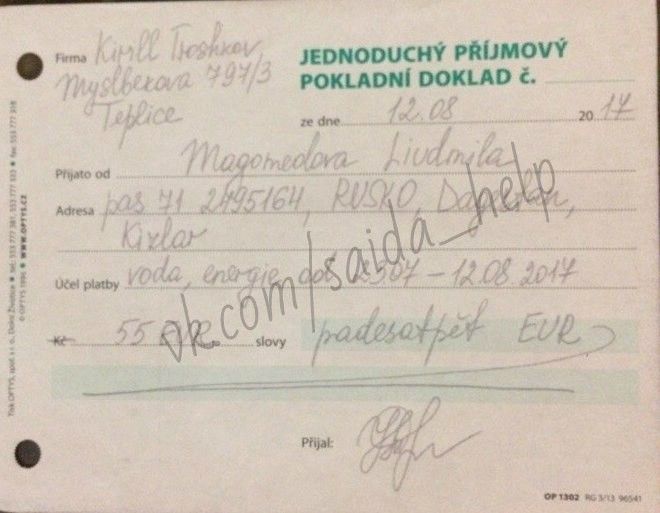 Firma Kirill Troshkov,
Myslbekova 797/3
Teplice
JEDNODUCHÝ PŘÍJMOVÝ
POKLADNÍ DOKLAD č.
ze dne 12.08 2017
Přijato od Magomedova Liudmila
Adresa pas 71 2495164, RUSKO, Dagestan,
Kizlar
Účel platby voda, energie od 25.07 – 12.08 2017
Kč 55 EUR slovy padesatpět EUR
Přijal:
OP 1302 RG 3/13 96541
Tisk OPTYS, spol. s r. o., Dolní Životice • tel.: 553 777 381, 553 777 555 • fax: 553 777 518
© OPTYS 1995 • WWW.OPTYS.CZ
vk.com/saida_help